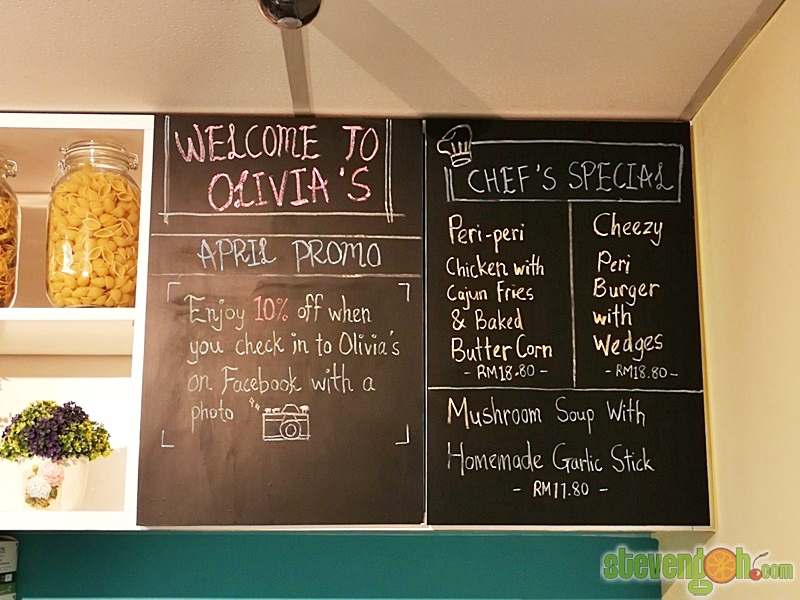 WELCOME TO
OLIVIA'S
APRIL PROMO
Enjoy 10% off when
you check in to Olivia's
on Facebook with a
photo
CHEF'S SPECIAL
Peri-peri
Chicken with
Cajun Fries
& Baked
Butter Corn
- RM18.80 -
Cheezy
Peri
Burger
with
Wedges
- RM18.80 -
Mushroom Soup With
Homemade Garlic Stick
- RM11.80 -
stevengoh.com